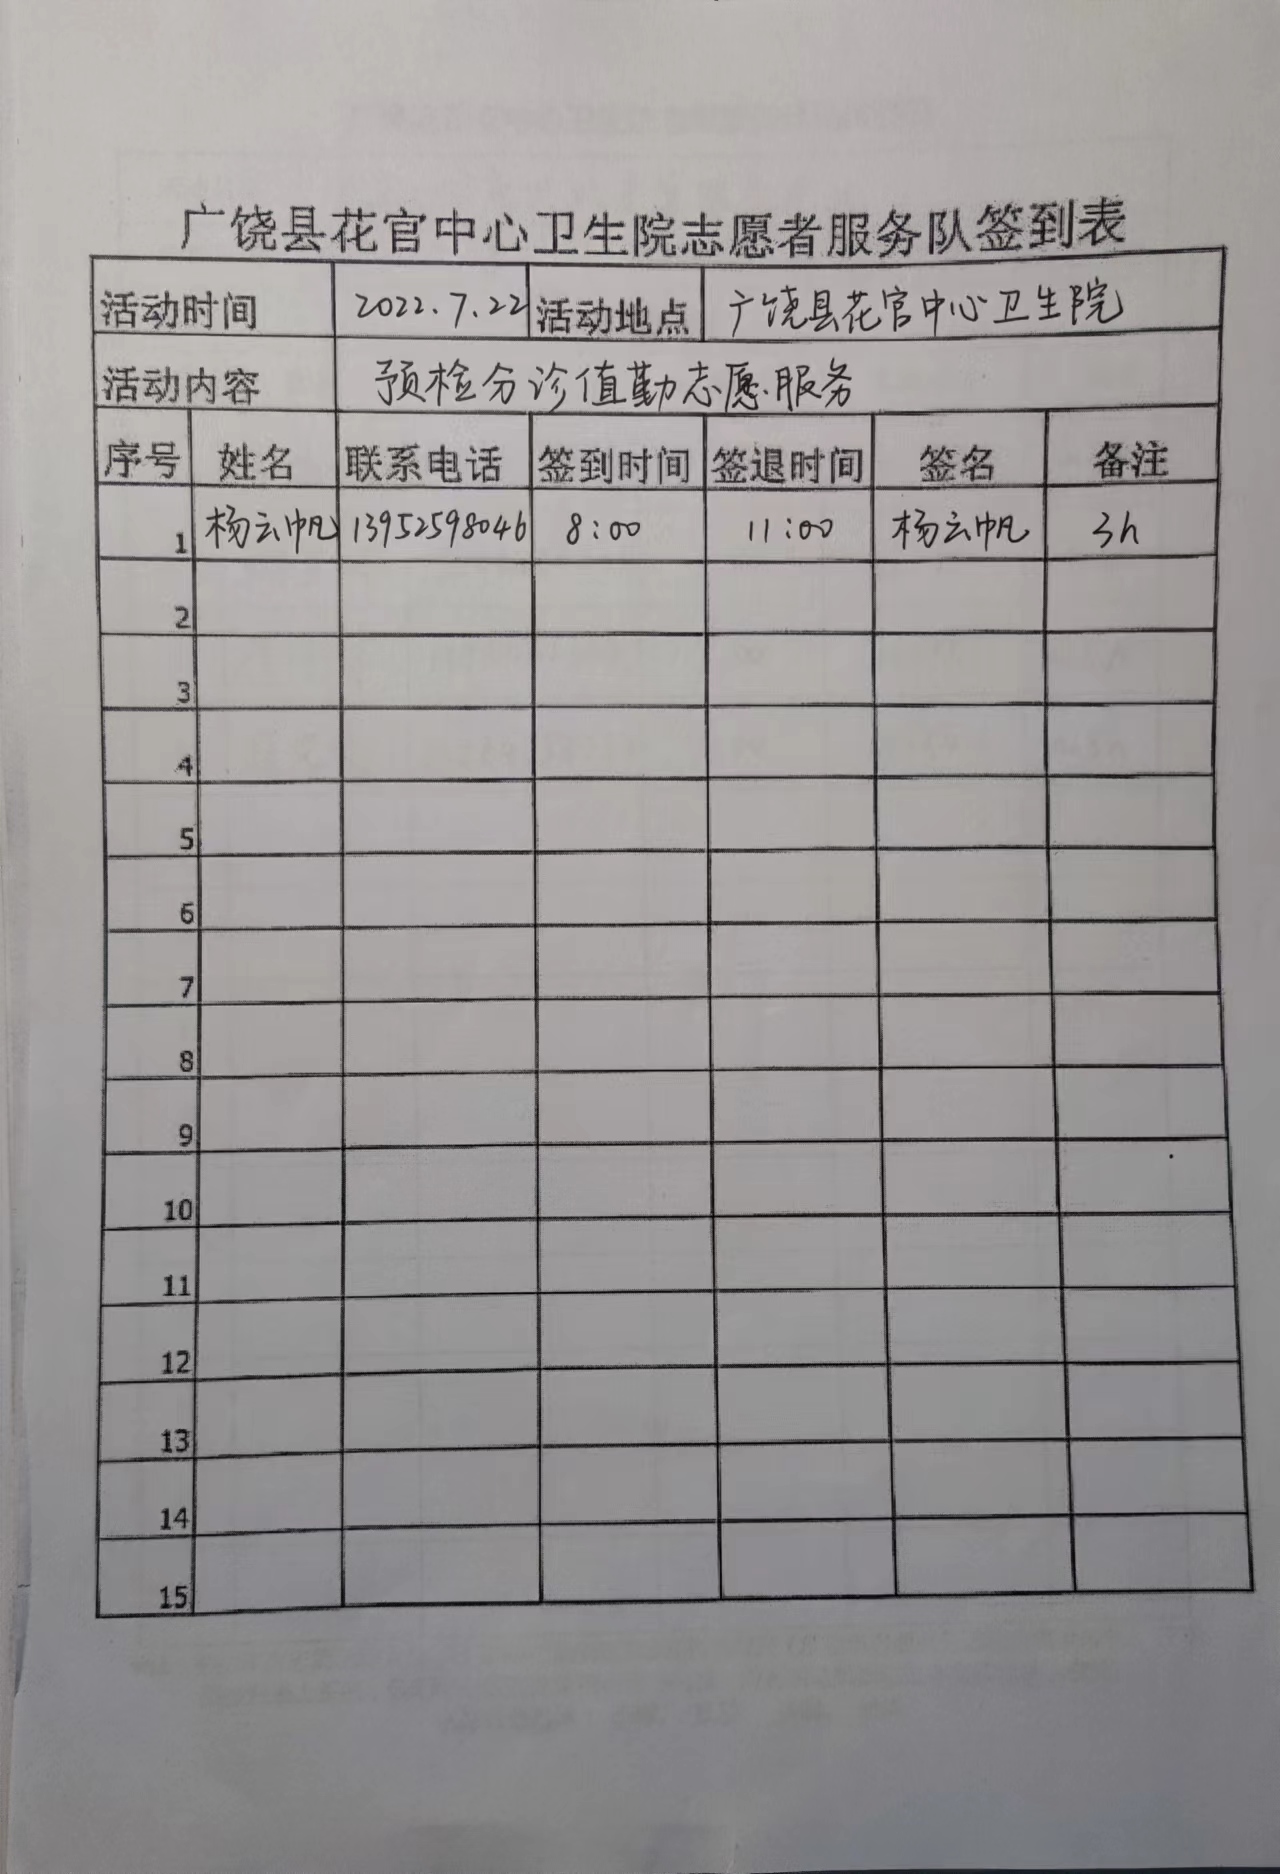 广饶县花官中心卫生院志愿者服务队签到表
活动时间 2022.7.22 活动地点 广饶县花官中心卫生院
活动内容 预检分诊值勤志愿服务
序号 姓名 联系电话 签到时间 签退时间 签名 备注
1 杨云帆 13952598046 8:00 11:00 杨云帆 3h
2
3
4
5
6
7
8
9
10
11
12
13
14
15